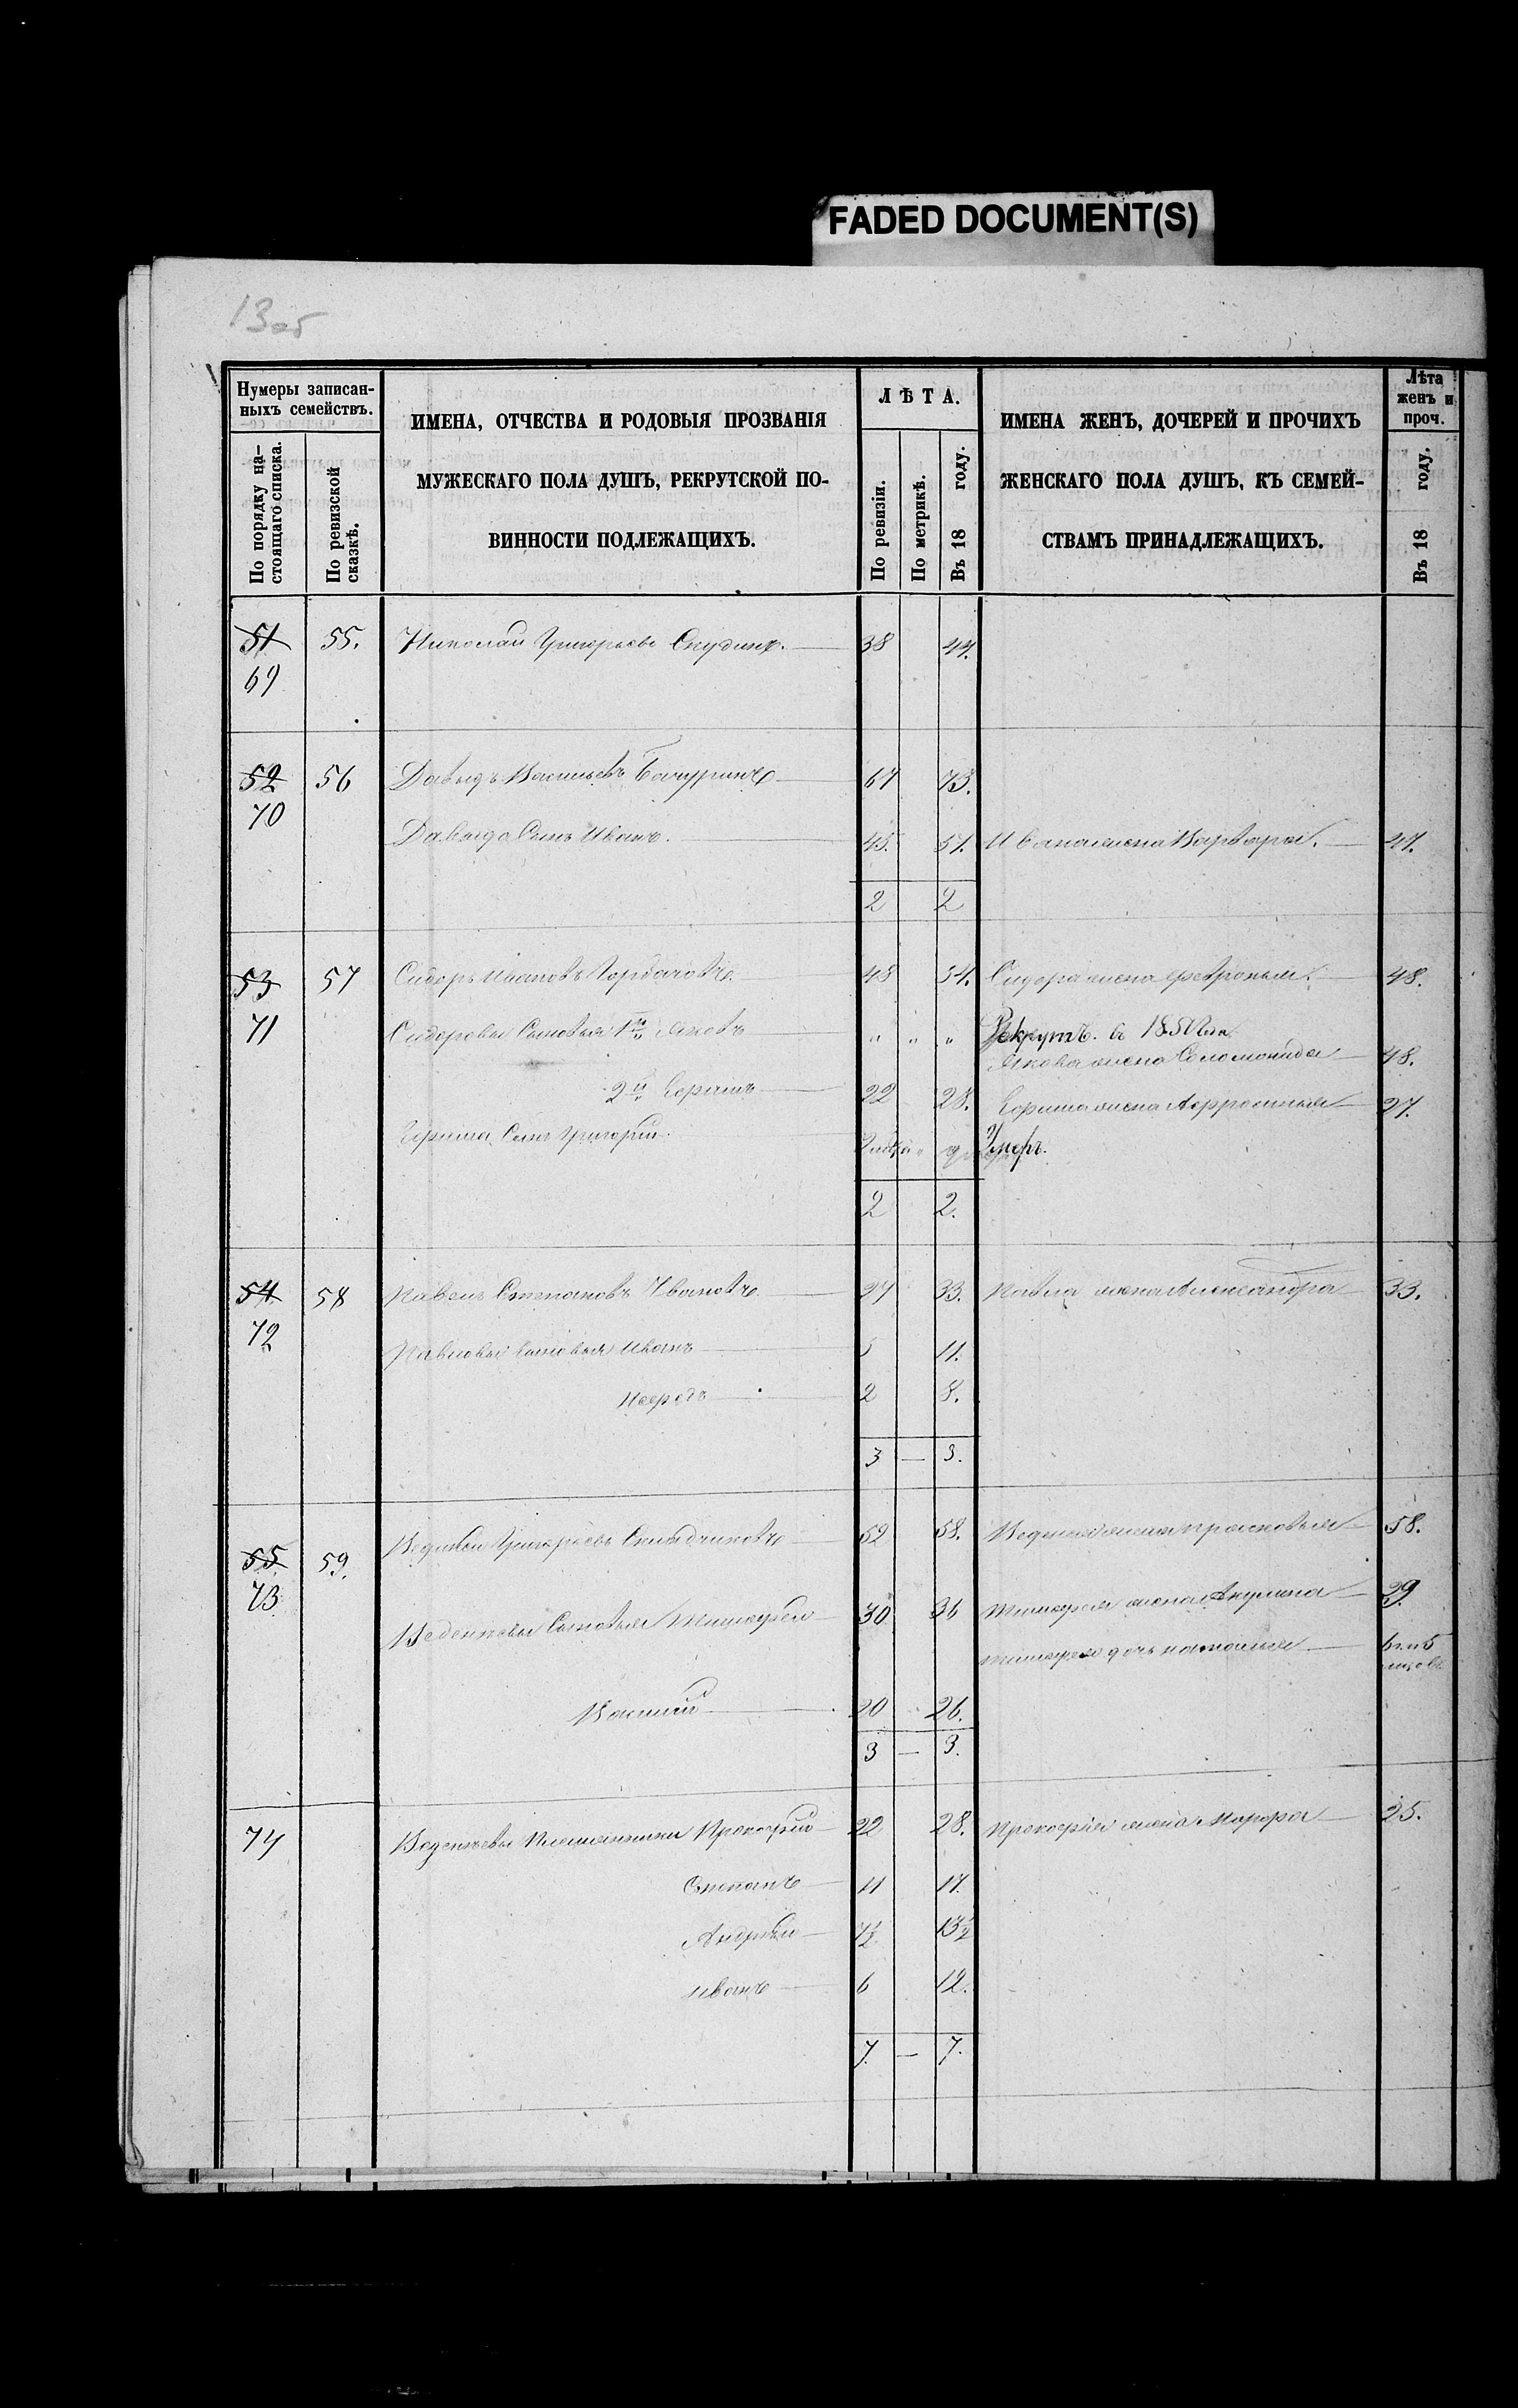 FADED DOCUMENT(S)
13 об
Нумеры записан-
ныхъ семействъ.
По порядку на-
стоящаго списка.
По ревизской
сказкѣ.
ИМЕНА, ОТЧЕСТВА И РОДОВЫЯ ПРОЗВАНІЯ
МУЖЕСКАГО ПОЛА ДУШЪ, РЕКРУТСКОЙ ПО-
ВИННОСТИ ПОДЛЕЖАЩИХЪ.
ЛѢТА.
По ревизіи.
По метрикѣ.
Въ 18 году.
ИМЕНА ЖЕНЪ, ДОЧЕРЕЙ И ПРОЧИХЪ
ЖЕНСКАГО ПОЛА ДУШЪ, КЪ СЕМЕЙ-
СТВАМЪ ПРИНАДЛЕЖАЩИХЪ.
Лѣта
женъ и
проч.
Въ 18 году.
51 55. Николай Григорьевъ Скудинъ. 38 44.
69
52 56 Давыдъ Васильевъ Бачуринъ 67 73.
70
Давыда Сынъ Иванъ. 45. 51. Ивана жена Варвара. 47.
2 2
53 57 Сидоръ Ивановъ Горбачовъ. 48 54. Сидора жена 48.
71 Сидоровы Сыновья 1й Яковъ " " " Рекрутъ. в 1850 года
Якова жена Соломонида 48.
2й Ефимъ 22 28. Ефима жена 27.
Ефима Сынъ Григорій. Умеръ.
2 2.
54 58 Павелъ Степановъ Ивановъ 27 33. Павла жена Александра 33.
72
Павловы сыновья Иванъ 5 11.
2 8.
3 — 3.
55 59. Григорьевъ 52 58. жена Прасковья 58.
73
Веденѣевы Сыновья Тимофей 30 36 Тимофея жена Акулина 29.
Тимофея дочь Наталья
Василій 20 26.
3 — 3.
74 Веденѣевы Племянники Прокофій 22 28. Прокофія жена Марфа 25.
Степанъ 11 17.
Андрей 7½ 13½
Иванъ 6 12.
7. — 7.